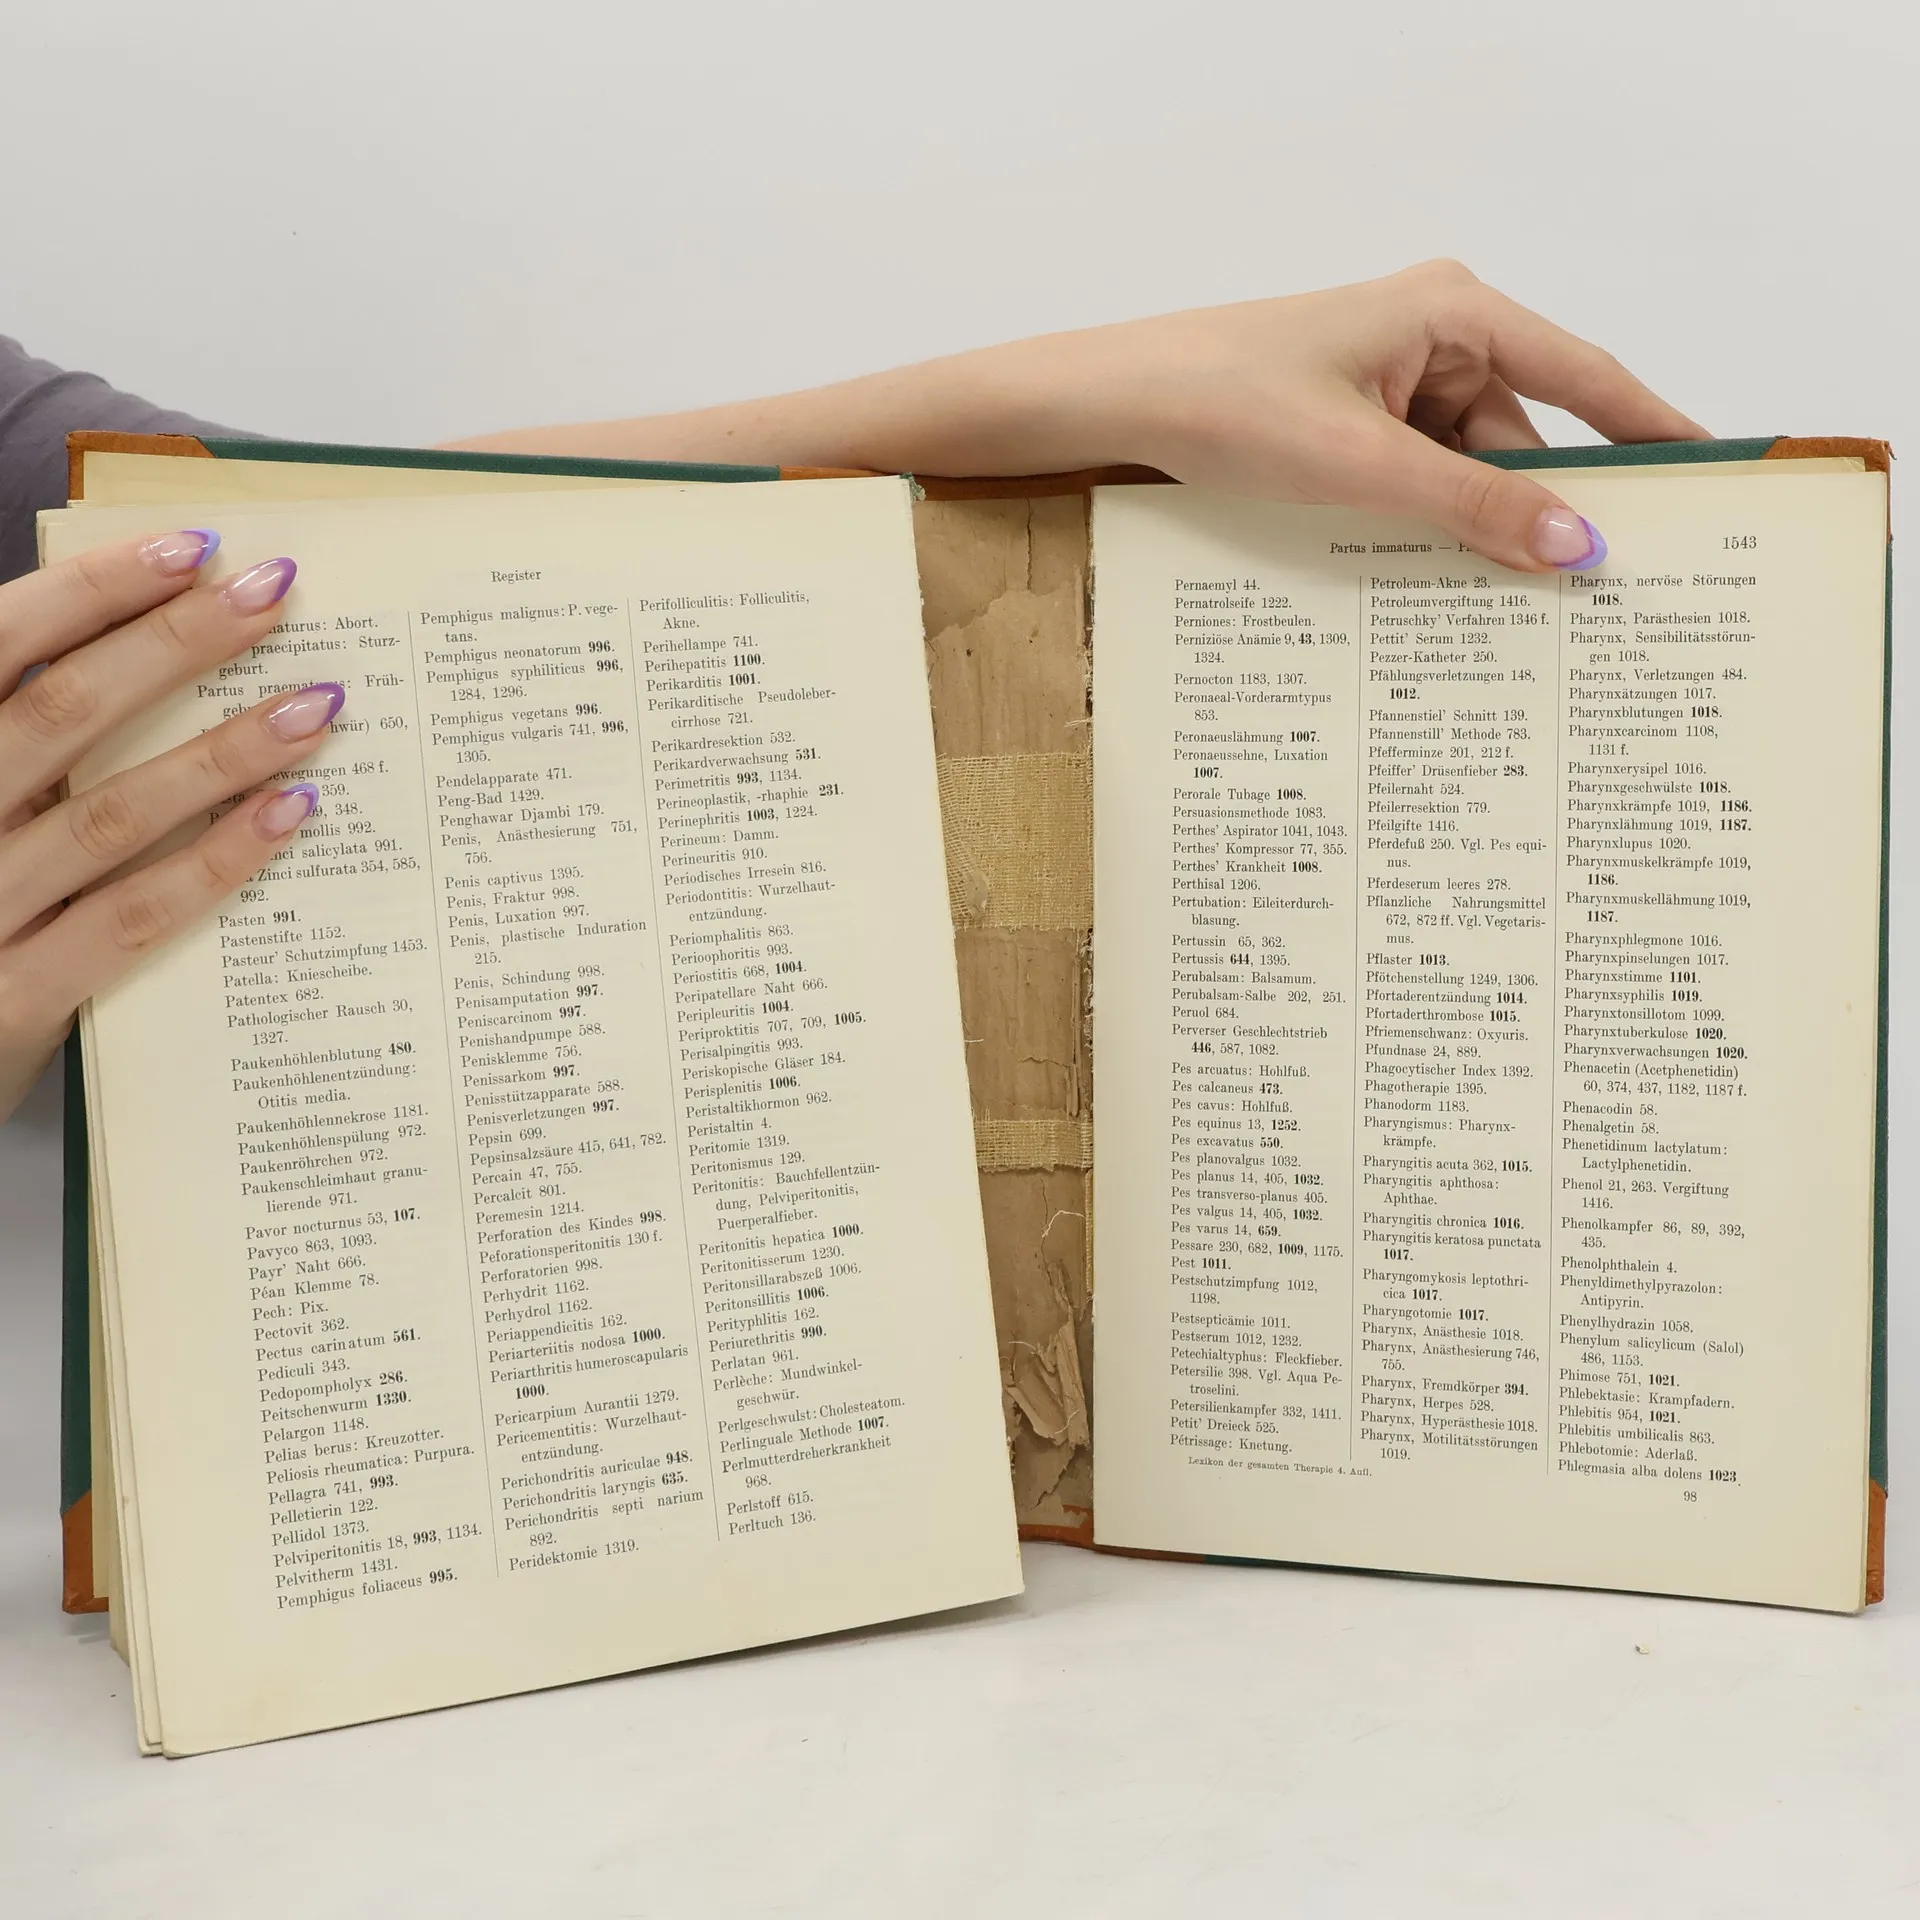 Register
aturus: Abort.
praecipitatus: Sturz-
geburt.
Partus praematurus: Früh-
geb
hwür) 650,
ewegungen 468 f.
359.
348.
mollis 992.
nci salicylata 991.
Zinci sulfurata 354, 585,
992.
Pasten 991.
Pastenstifte 1152.
Pasteur' Schutzimpfung 1453.
Patella: Kniescheibe.
Patentex 682.
Pathologischer Rausch 30,
1327.
Paukenhöhlenblutung 480.
Paukenhöhlenentzündung:
Otitis media.
Paukenhöhlennekrose 1181.
Paukenhöhlenspülung 972.
Paukenröhrchen 972.
Paukenschleimhaut granu-
lierende 971.
Pavor nocturnus 53, 107.
Pavyco 863, 1093.
Payr' Naht 666.
Péan Klemme 78.
Pech: Pix.
Pectovit 362.
Pectus carinatum 561.
Pediculi 343.
Pedopompholyx 286.
Peitschenwurm 1330.
Pelargon 1148.
Pelias berus: Kreuzotter.
Peliosis rheumatica: Purpura.
Pellagra 741, 993.
Pelletierin 122.
Pellidol 1373.
Pelviperitonitis 18, 993, 1134.
Pelvitherm 1431.
Pemphigus foliaceus 995.
Pemphigus malignus: P. vege-
tans.
Pemphigus neonatorum 996.
Pemphigus syphiliticus 996,
1284, 1296.
Pemphigus vegetans 996.
Pemphigus vulgaris 741, 996,
1305.
Pendelapparate 471.
Peng-Bad 1429.
Penghawar Djambi 179.
Penis, Anästhesierung 751,
756.
Penis captivus 1395.
Penis, Fraktur 998.
Penis, Luxation 997.
Penis, plastische Induration
215.
Penis, Schindung 998.
Penisamputation 997.
Peniscarcinom 997.
Penishandpumpe 588.
Penisklemme 756.
Penissarkom 997.
Penisstützapparate 588.
Penisverletzungen 997.
Pepsin 699.
Pepsinsalzsäure 415, 641, 782.
Percain 47, 755.
Percalcit 801.
Peremesin 1214.
Perforation des Kindes 998.
Peforationsperitonitis 130 f.
Perforatorien 998.
Perhydrit 1162.
Perhydrol 1162.
Periappendicitis 162.
Periarteriitis nodosa 1000.
Periarthritis humeroscapularis
1000.
Pericarpium Aurantii 1279.
Pericementitis: Wurzelhaut-
entzündung.
Perichondritis auriculae 948.
Perichondritis laryngis 635.
Perichondritis septi narium
892.
Peridektomie 1319.
Perifolliculitis: Folliculitis,
Akne.
Perihellampe 741.
Perihepatitis 1100.
Perikarditis 1001.
Perikarditische Pseudoleber-
cirrhose 721.
Perikardresektion 532.
Perikardverwachsung 531.
Perimetritis 993, 1134.
Perineoplastik, -rhaphie 231.
Perinephritis 1003, 1224.
Perineum: Damm.
Perineuritis 910.
Periodisches Irresein 816.
Periodontitis: Wurzelhaut-
entzündung.
Periomphalitis 863.
Perioophoritis 993.
Periostitis 668, 1004.
Peripatellare Naht 666.
Peripleuritis 1004.
Periproktitis 707, 709, 1005.
Perisalpingitis 993.
Periskopische Gläser 184.
Perisplenitis 1006.
Peristaltikhormon 962.
Peristaltin 4.
Peritomie 1319.
Peritonismus 129.
Peritonitis: Bauchfellentzün-
dung, Pelviperitonitis,
Puerperalfieber.
Peritonitis hepatica 1000.
Peritonitisserum 1230.
Peritonsillarabszeß 1006.
Peritonsillitis 1006.
Perityphlitis 162.
Periurethritis 990.
Perlatan 961.
Perlèche: Mundwinkel-
geschwür.
Perlgeschwulst: Cholesteatom.
Perlinguale Methode 1007.
Perlmutterdreherkrankheit
968.
Perlstoff 615.
Perltuch 136.
Partus immaturus — 1543
Pernaemyl 44.
Pernatrolseife 1222.
Perniones: Frostbeulen.
Perniziöse Anämie 9, 43, 1309,
1324.
Pernocton 1183, 1307.
Peronaeal-Vorderarmtypus
853.
Peronaeuslähmung 1007.
Peronaeussehne, Luxation
1007.
Perorale Tubage 1008.
Persuasionsmethode 1083.
Perthes' Aspirator 1041, 1043.
Perthes' Kompressor 77, 355.
Perthes' Krankheit 1008.
Perthisal 1206.
Pertubation: Eileiterdurch-
blasung.
Pertussin 65, 362.
Pertussis 644, 1395.
Perubalsam: Balsamum.
Perubalsam-Salbe 202, 251.
Peruol 684.
Perverser Geschlechtstrieb
446, 587, 1082.
Pes arcuatus: Hohlfuß.
Pes calcaneus 473.
Pes cavus: Hohlfuß.
Pes equinus 13, 1252.
Pes excavatus 550.
Pes planovalgus 1032.
Pes planus 14, 405, 1032.
Pes transverso-planus 405.
Pes valgus 14, 405, 1032.
Pes varus 14, 659.
Pessare 230, 682, 1009, 1175.
Pest 1011.
Pestschutzimpfung 1012,
1198.
Pestsepticämie 1011.
Pestserum 1012, 1232.
Petechialtyphus: Fleckfieber.
Petersilie 398. Vgl. Aqua Pe-
troselini.
Petersilienkampfer 332, 1411.
Petit' Dreieck 525.
Pétrissage: Knetung.
Petroleum-Akne 23.
Petroleumvergiftung 1416.
Petruschky' Verfahren 1346 f.
Pettit' Serum 1232.
Pezzer-Katheter 250.
Pfählungsverletzungen 148,
1012.
Pfannenstiel' Schnitt 139.
Pfannenstill' Methode 783.
Pfefferminze 201, 212 f.
Pfeiffer' Drüsenfieber 283.
Pfeilernaht 524.
Pfeilerresektion 779.
Pfeilgifte 1416.
Pferdefuß 250. Vgl. Pes equi-
nus.
Pferdeserum leeres 278.
Pflanzliche Nahrungsmittel
672, 872 ff. Vgl. Vegetaris-
mus.
Pflaster 1013.
Pfötchenstellung 1249, 1306.
Pfortaderentzündung 1014.
Pfortaderthrombose 1015.
Pfriemenschwanz: Oxyuris.
Pfundnase 24, 889.
Phagocytischer Index 1392.
Phagotherapie 1395.
Phanodorm 1183.
Pharyngismus: Pharynx-
krämpfe.
Pharyngitis acuta 362, 1015.
Pharyngitis aphthosa:
Aphthae.
Pharyngitis chronica 1016.
Pharyngitis keratosa punctata
1017.
Pharyngomykosis leptothri-
cica 1017.
Pharyngotomie 1017.
Pharynx, Anästhesie 1018.
Pharynx, Anästhesierung 746,
755.
Pharynx, Fremdkörper 394.
Pharynx, Herpes 528.
Pharynx, Hyperästhesie 1018.
Pharynx, Motilitätsstörungen
1019.
Pharynx, nervöse Störungen
1018.
Pharynx, Parästhesien 1018.
Pharynx, Sensibilitätsstörun-
gen 1018.
Pharynx, Verletzungen 484.
Pharynxätzungen 1017.
Pharynxblutungen 1018.
Pharynxcarcinom 1108,
1131 f.
Pharynxerysipel 1016.
Pharynxgeschwülste 1018.
Pharynxkrämpfe 1019, 1186.
Pharynxlähmung 1019, 1187.
Pharynxlupus 1020.
Pharynxmuskelkrämpfe 1019,
1186.
Pharynxmuskellähmung 1019,
1187.
Pharynxphlegmone 1016.
Pharynxpinselungen 1017.
Pharynxstimme 1101.
Pharynxsyphilis 1019.
Pharynxtonsillotom 1099.
Pharynxtuberkulose 1020.
Pharynxverwachsungen 1020.
Phenacetin (Acetphenetidin)
60, 374, 437, 1182, 1187 f.
Phenacodin 58.
Phenalgetin 58.
Phenetidinum lactylatum:
Lactylphenetidin.
Phenol 21, 263. Vergiftung
1416.
Phenolkampfer 86, 89, 392,
435.
Phenolphthalein 4.
Phenyldimethylpyrazolon:
Antipyrin.
Phenylhydrazin 1058.
Phenylum salicylicum (Salol)
486, 1153.
Phimose 751, 1021.
Phlebektasie: Krampfadern.
Phlebitis 954, 1021.
Phlebitis umbilicalis 863.
Phlebotomie: Aderlaß.
Phlegmasia alba dolens 1023.
Lexikon der gesamten Therapie 4. Aufl.
98